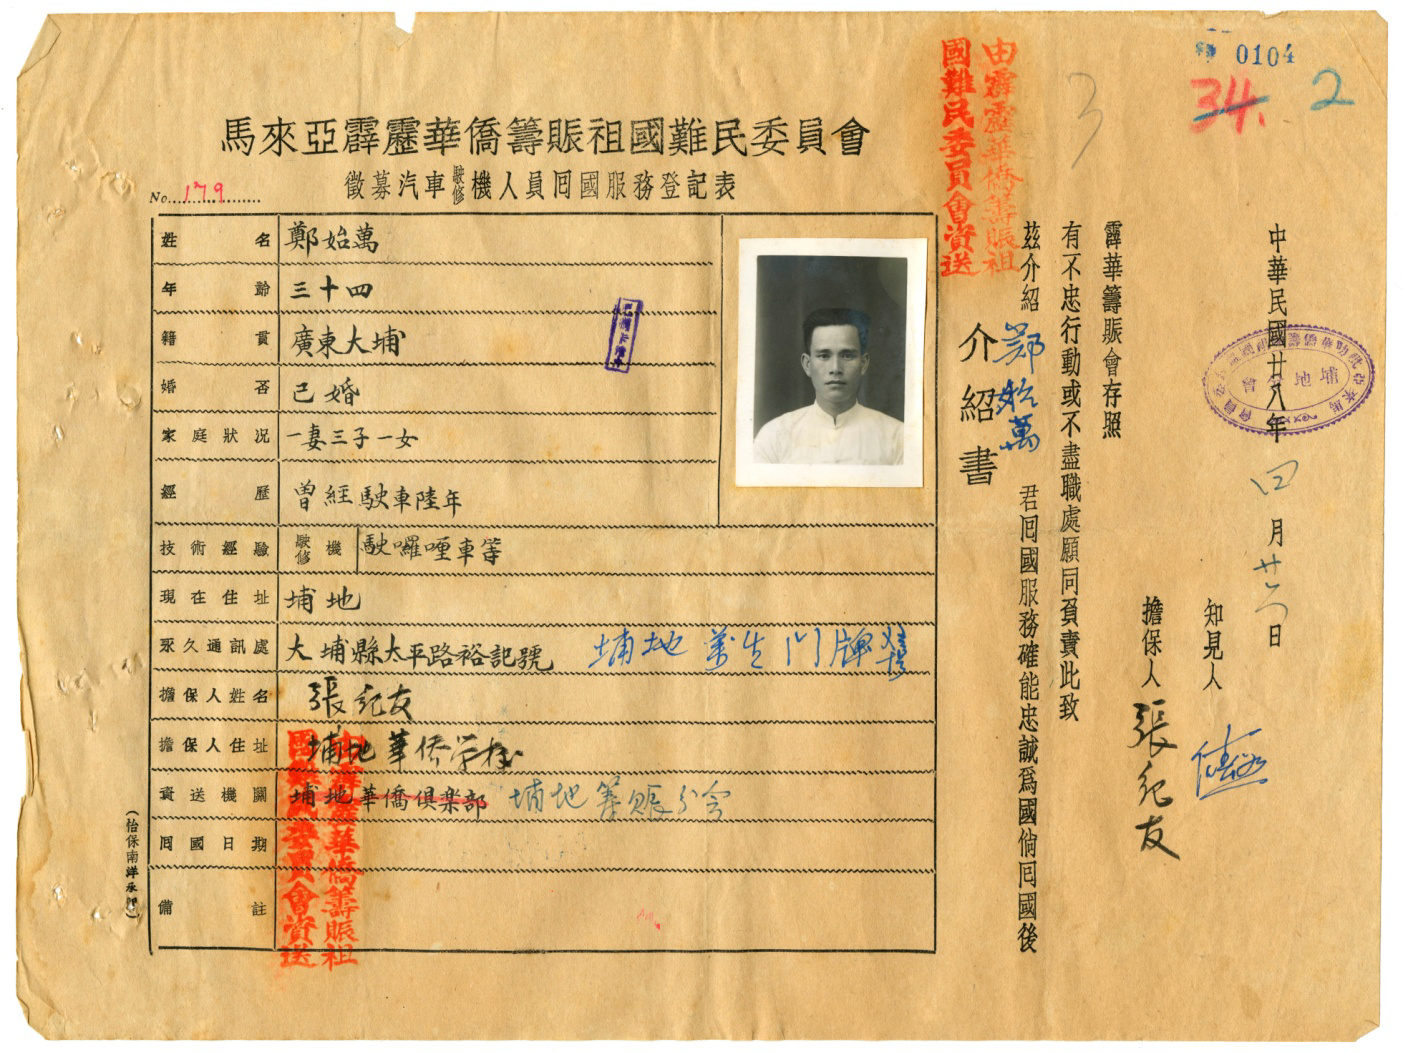 0104
34.
2
3
馬來亞霹靂華僑籌賑祖國難民委員會
徵募汽車駛修機人員囘國服務登記表
No. 179
姓名 鄭始萬
年齡 三十四
籍貫 廣東大埔
婚否 已婚
家庭狀况 一妻三子一女
經歷 曾經駛車陸年
技術經驗 駛修機 駛囉哩車等
現在住址 埔地
永久通訊處 大埔縣太平路裕記號 埔地
担保人姓名 張紀友
擔保人住址 埔地華僑学校
資送機關 埔地華僑俱楽部 埔地籌賑分会
囘國日期
備註
由霹靂華僑籌賑祖
國難民委員會資送
(怡保南洋承印)
由霹靂華僑籌賑祖
國難民委員會資送
介紹書
茲介紹 鄭始萬 君囘國服務確能忠誠爲國倘囘國後
有不忠行動或不盡職處願同負責此致
霹華籌賑會存照
擔保人 張紀友
知見人
中華民國廿八年四月廿六日